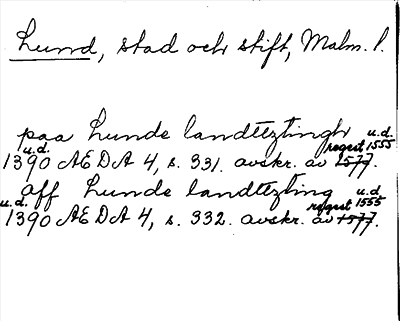 Lund, stad och stift, Malm. l.
paa Lunde landtztingh
u.d. 1390 AEDA 4, s. 331. avskr. av 1577. regest u.d. 1555
aff Lunde landtzting
u.d. 1390 AEDA 4, s. 332. avskr. av 1577. regest u.d 1555